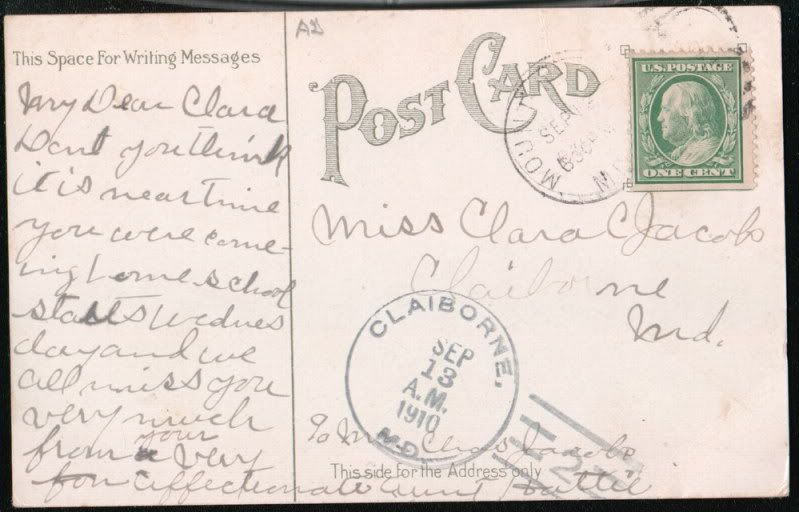 This Space For Writing Messages
My Dear Clara
Dont you think
it is near time
you were come-
ing home school
starts Wednes
day and we
all miss you
very much
from your very
affectionate Aunt Hattie
AD
POST CARD
SEP
630 P
M
U.S. POSTAGE
ONE CENT
Miss Clara C Jacobs
Claiborne
Md.
CLAIBORNE,
SEP
13
A.M.
1910
MD.
Jacobs
This side for the Address only